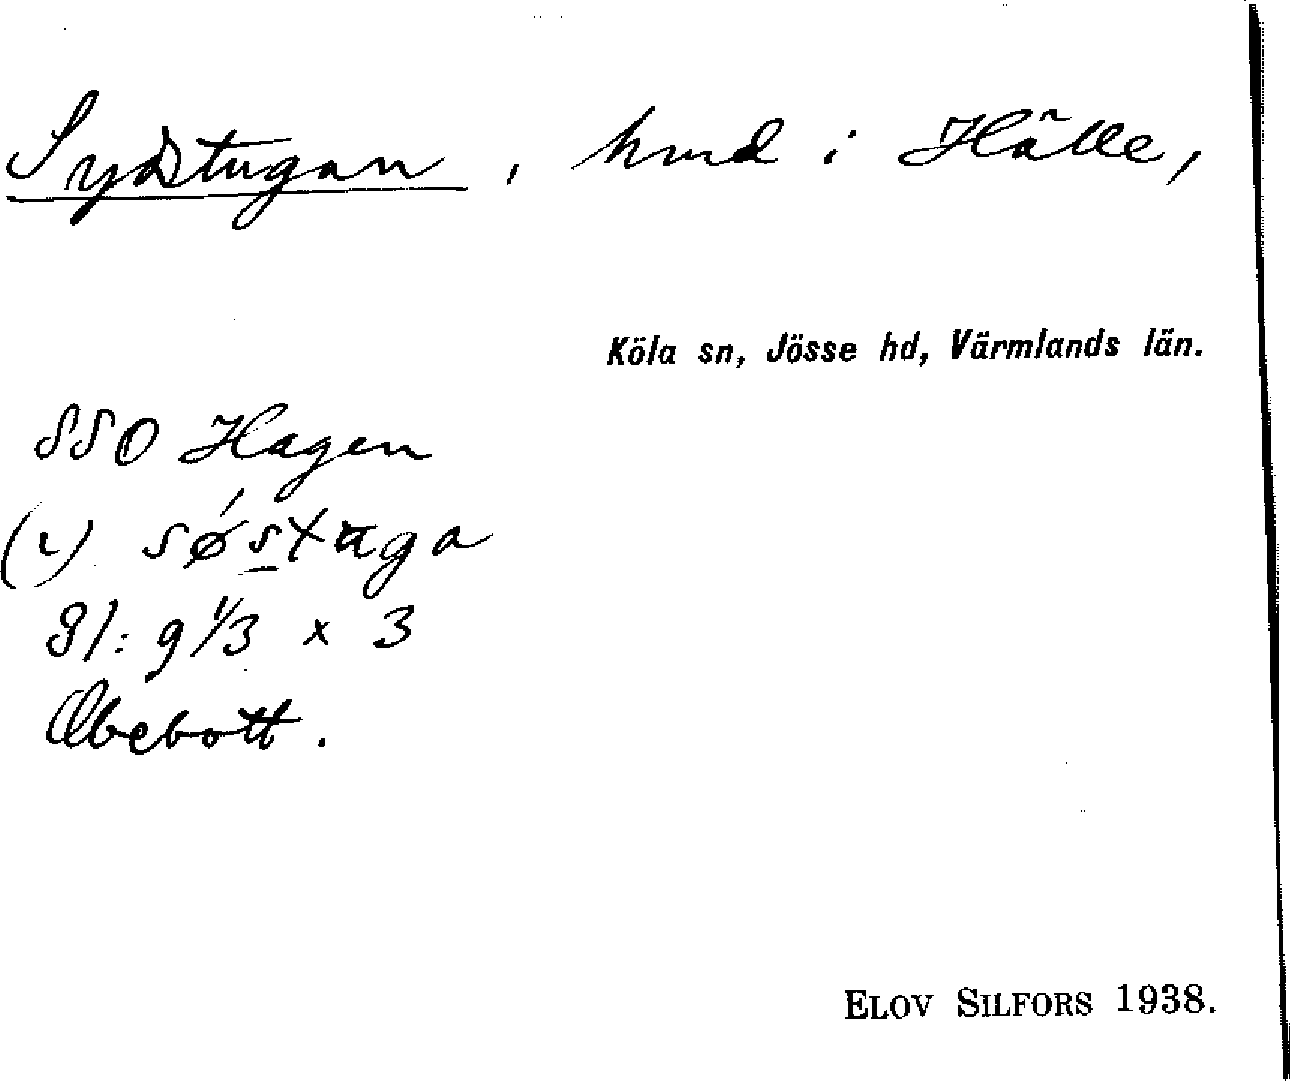 Sydstugan, hmd i Hälle,
Köla sn, Jösse hd, Värmlands län.
SSO Hagen
(ι) sǿstuga
Gl: g 1/3 x 3
Obebott.
ELOV SILFORS 1938.